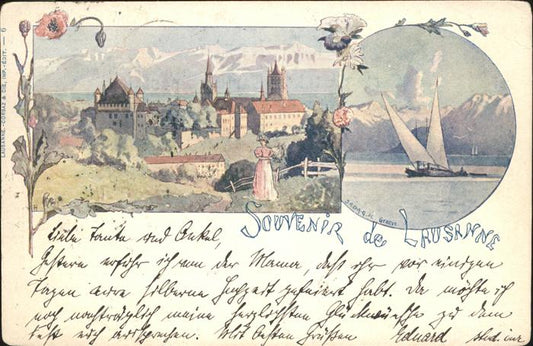 LAUSANNE.
6
SOUVENIR de LAUSANNE
Liebe Tante und Onkel,
Gestern erfuhr ich von der Mama, dass ihr vor einigen
Tagen eure silberne Hochzeit gefeiert habt. Da möchte ich
noch nachträglich meine herzlichsten Glückwünsche zu dem
Fest euch aussprechen. Mit besten Grüßen Eduard